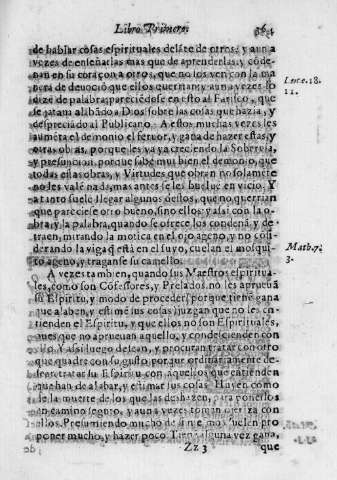 Libro Primero. 361
de hablar cosas espirituales delãte de otros, y aun a
vezes de enseñarlas mas que de aprenderlas, y cõde-
nan en su coraçon a otros, que no los ven con la ma
nera de deuociõ que ellos querrian, y aun a vezes lo
dizẽ de palabra; pareciẽdose en esto al Fariseo, que
se jataua alabãdo a Dios sobre las cosas que hazia, y
despreciãdo al Publicano. A estos muchas vezes les
aumẽta el demonio el feruor, y gana de hazer estas, y
otras obras, porque les vaya creciendo la Soberuia,
y presuncion, porque sabe muy bien el demonio, que
todas estas obras, y Virtudes que obran no solamẽte
no les valẽ nada, mas antes se les buelue en vicio. Y
a tanto suelẽ llegar algunos destos, que no querrian
que pareciesse otro bueno, sino ellos: y assi con la o-
bra, y la palabra, quando se ofrece los condenã, y de-
traen, mirando la motica en el ojo ageno, y no con
siderando la viga q̃ està en el suyo, cuelan el mosqui-
to ageno, y traganse su camello.
A vezes tambien, quando sus Maestros espiritua-
les, como son Cõfessores, y Prelados, no les aprueuã
su Espiritu, y modo de proceder, porque tienẽ gana
que alaben, y estimẽ sus cosas, juzgan que no les en-
tienden el Espiritu, y que ellos no son Espirituales,
pues que no aprueuan aquello, y condescienden con
ello. Y assi luego dessean, y procuran tratar con otro
que quadre con su gusto, porque ordinariamente de-
sean tratar su Espiritu con aquellos que entienden
que han de alabar, y estimar sus cosas. Huyen como
de la muerte de los que las deshazen, para ponerlos
en camino seguro, y aun a vezes toman ojeriza con
ellos. Presumiendo mucho de si mesmos suelen pro
poner mucho, y hazer poco. Tienẽ alguna vez gana,
Zz 3 que
Luce. 18.
11.
Math. 7.
3.